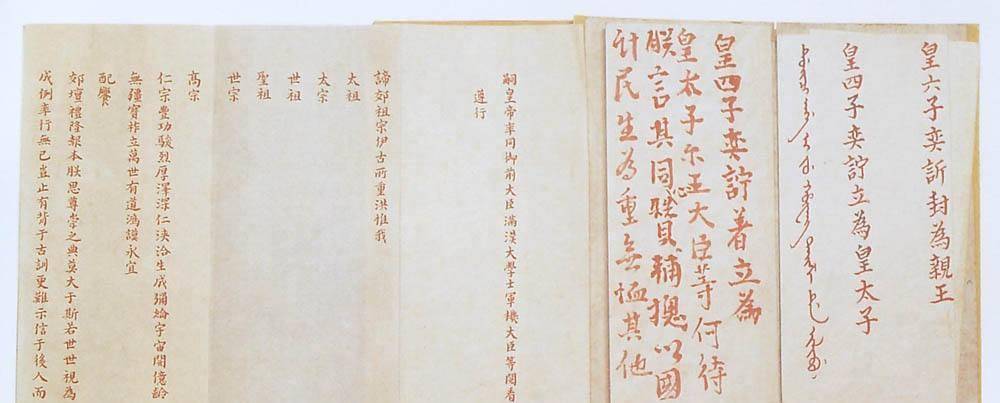 皇六子奕訢封為親王
皇四子奕詝立為皇太子
皇四子奕詝著立為
皇太子尒王大臣等何待
朕言其同心賛輔捴以國
計民生為重無恤其他
嗣皇帝率同御前大臣滿漢大學士軍機大臣等閱看
遵行
禘郊祖宗伊古所重洪惟我
太祖
太宗
世祖
聖祖
世宗
高宗
仁宗豐功駿烈厚澤深仁浹洽生成彌綸宇宙開億齡
無疆寶祚立萬世有道鴻謨永宜
配饗
郊壇禮隆報本朕思尊崇之典莫大于斯若世世視為
成例奉行無已豈止有背于古訓更難示信于後人而